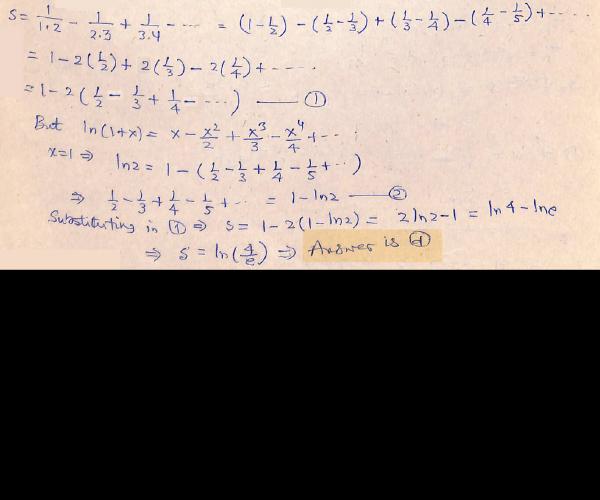 S = 1/1·2 - 1/2·3 + 1/3·4 - ···· = (1-1/2) - (1/2-1/3) + (1/3-1/4) - (1/4-1/5) + ·····
= 1-2(1/2) + 2(1/3) - 2(1/4) + ·····
= 1-2(1/2 - 1/3 + 1/4 - ···) —— ①
But ln(1+x) = x - x²/2 + x³/3 - x⁴/4 + ···
x=1 ⇒ ln2 = 1 - (1/2 - 1/3 + 1/4 - 1/5 + ··)
⇒ 1/2 - 1/3 + 1/4 - 1/5 + ·· = 1-ln2 —— ②
Substituting in ① ⇒ S = 1-2(1-ln2) = 2ln2-1 = ln4-lne
⇒ S = ln(4/e) ⇒ Answer is ⓓ